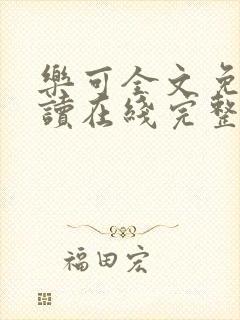 樂可全文免
讀在綫完整
福田宏